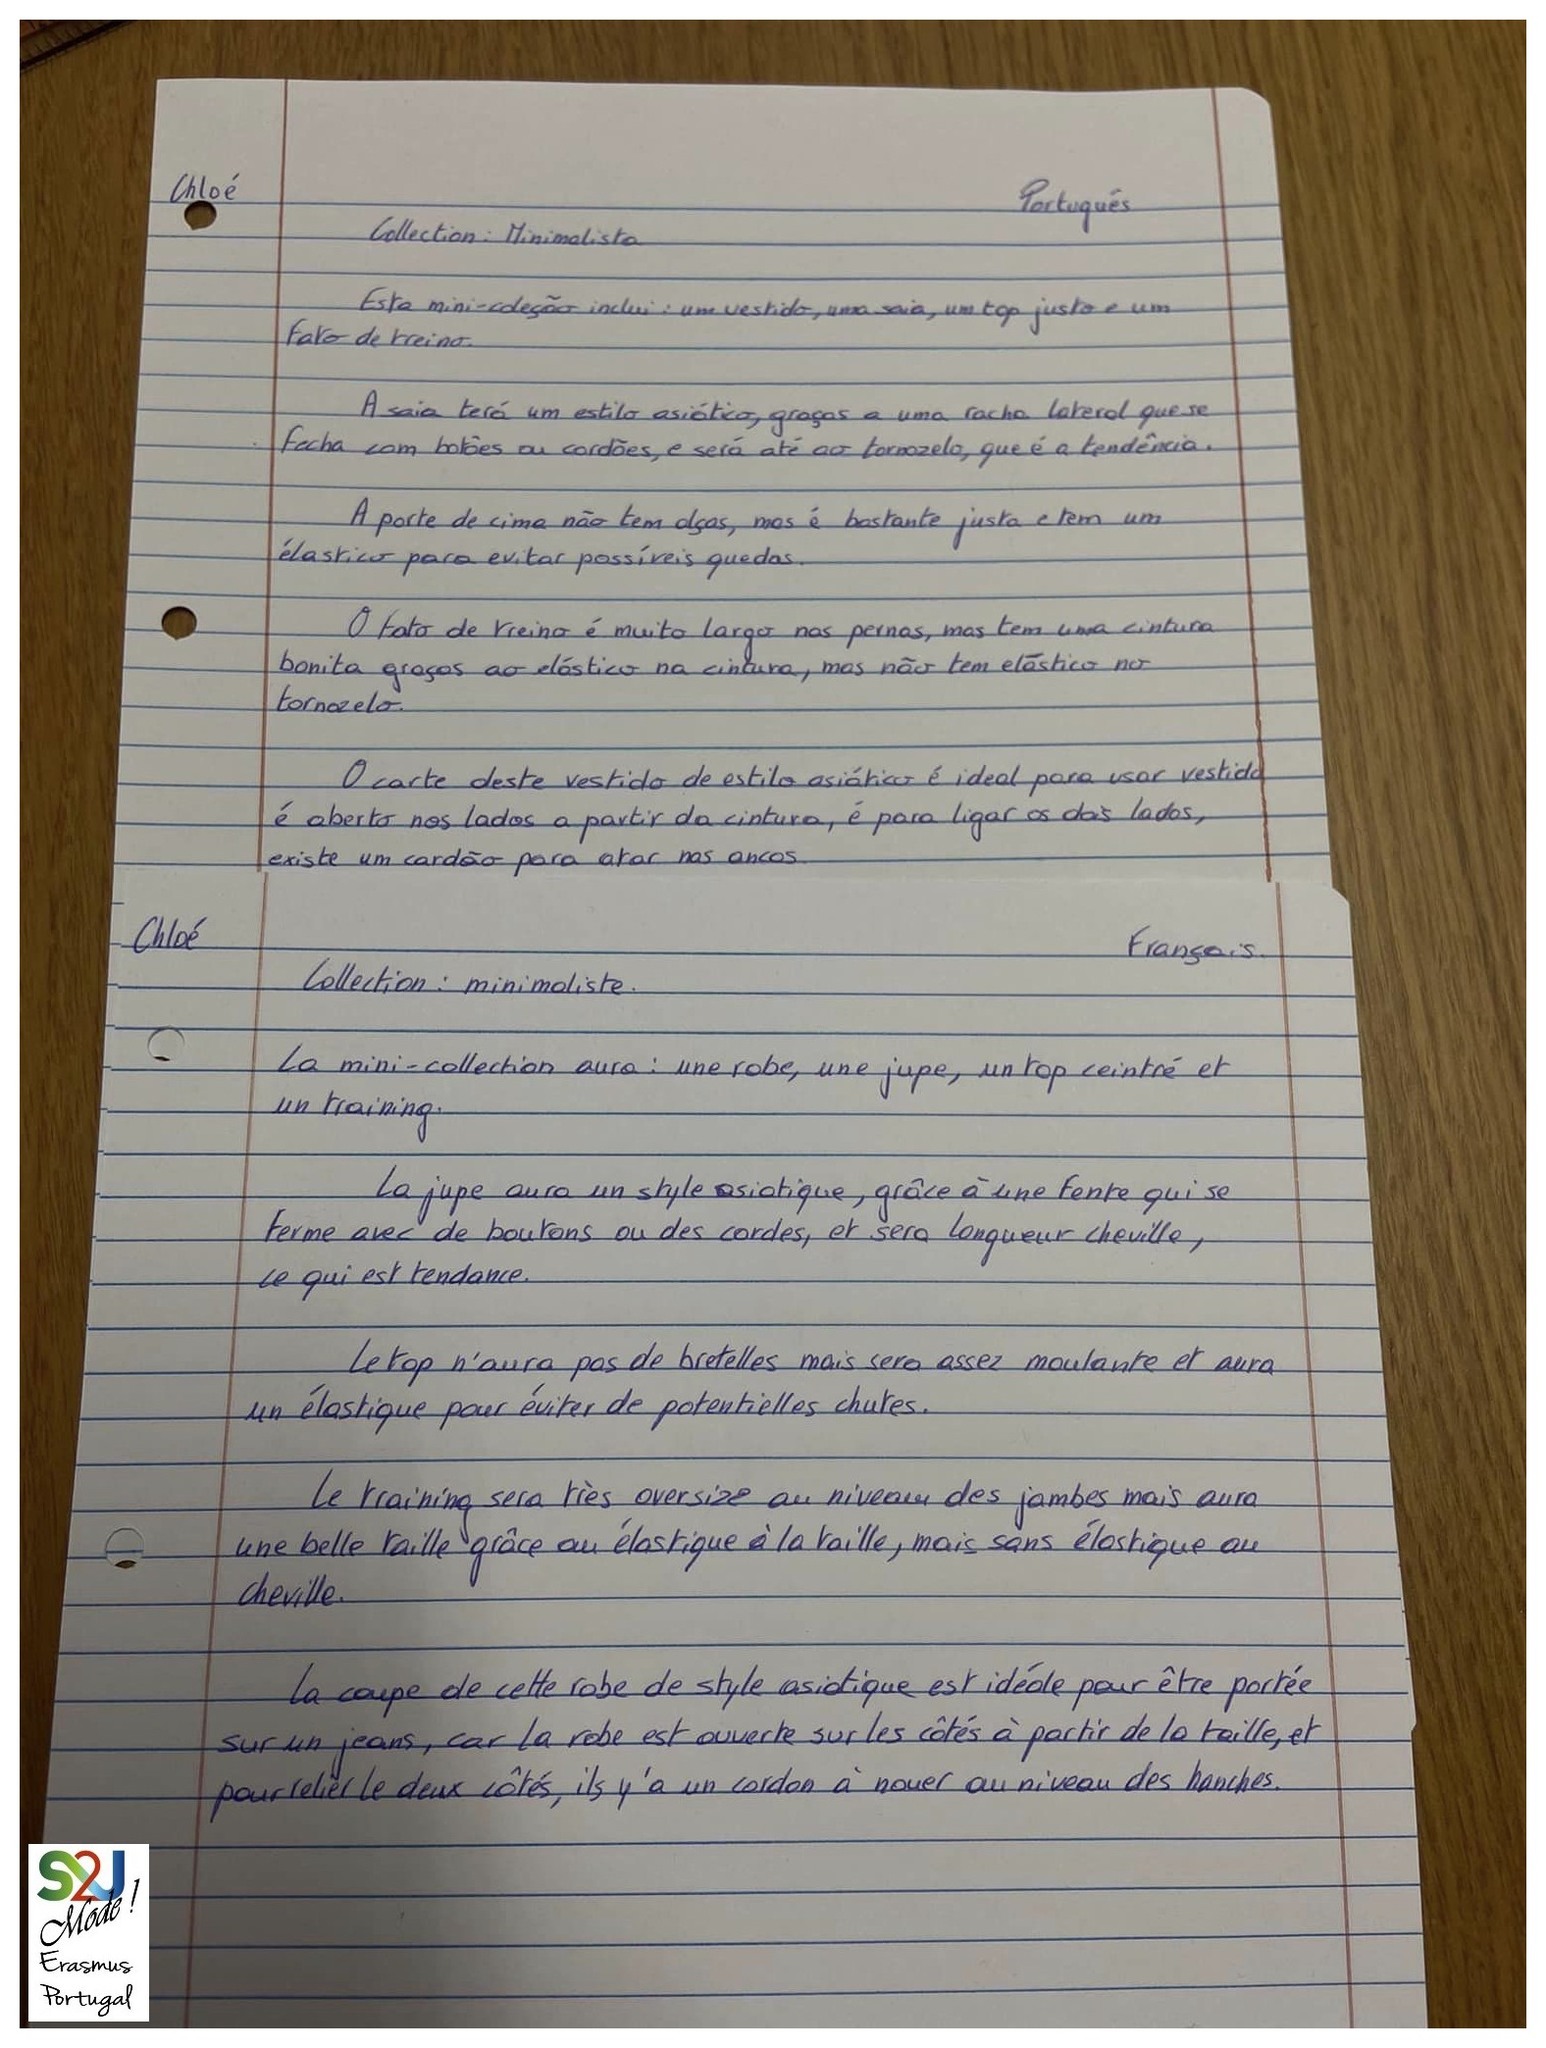 Chloé
Portugués
Collection: Minimalista
Esta mini-coleção inclui: um vestido, uma saia, um top justo e um
fato de treino.
A saia terá um estilo asiático, graças a uma racha lateral que se
fecha com botões ou cordões, e será até ao tornozelo, que é a tendência.
A parte de cima não tem alças, mas é bastante justa e tem um
élastico para evitar possíveis quedas.
O fato de treino é muito largo nas pernas, mas tem uma cintura
bonita graças ao elástico na cintura, mas não tem elástico no
tornozelo.
O carte deste vestido de estilo asiático é ideal para usar vestido
é aberto nos lados a partir da cintura, é para ligar os dois lados,
existe um cardão para atar nas ancas.
Chloé
Français.
Collection: minimaliste.
La mini-collection aura: une robe, une jupe, un top ceintré et
un training.
La jupe aura un style asiatique, grâce à une fente qui se
ferme avec de boutons ou des cordes, et sera longueur cheville,
ce qui est tendance.
Le top n'aura pas de bretelles mais sera assez moulante et aura
un élastique pour éviter de potentielles chutes.
Le training sera très oversize au niveau des jambes mais aura
une belle taille grâce au élastique à la taille, mais sans élastique au
cheville.
La coupe de cette robe de style asiatique est idéale pour être portée
sur un jeans, car la robe est ouverte sur les côtés à partir de la taille, et
pour relier le deux côtés, ils y'a un cordon à nouer au niveau des hanches.
S2J
Mode!
Erasmus
Portugal